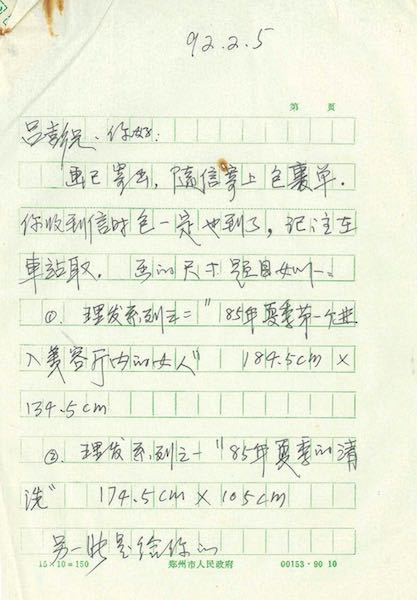 92.2.5
第 页
吕彭兄、你好:
画已寄出, 随信寄上包裹单.
你收到信时包一定也到了, 记注在
車站取. 画的尺寸题目如下。
①. 理发系列之二"85年夏季第一个进
入美容厅内的女人" 184.5cm ×
134.5cm
②. 理发系列之一"85年夏季的清
洗" 174.5cm × 105cm
另一张是给你的
15×10=150 郑州市人民政府 00153·90 10